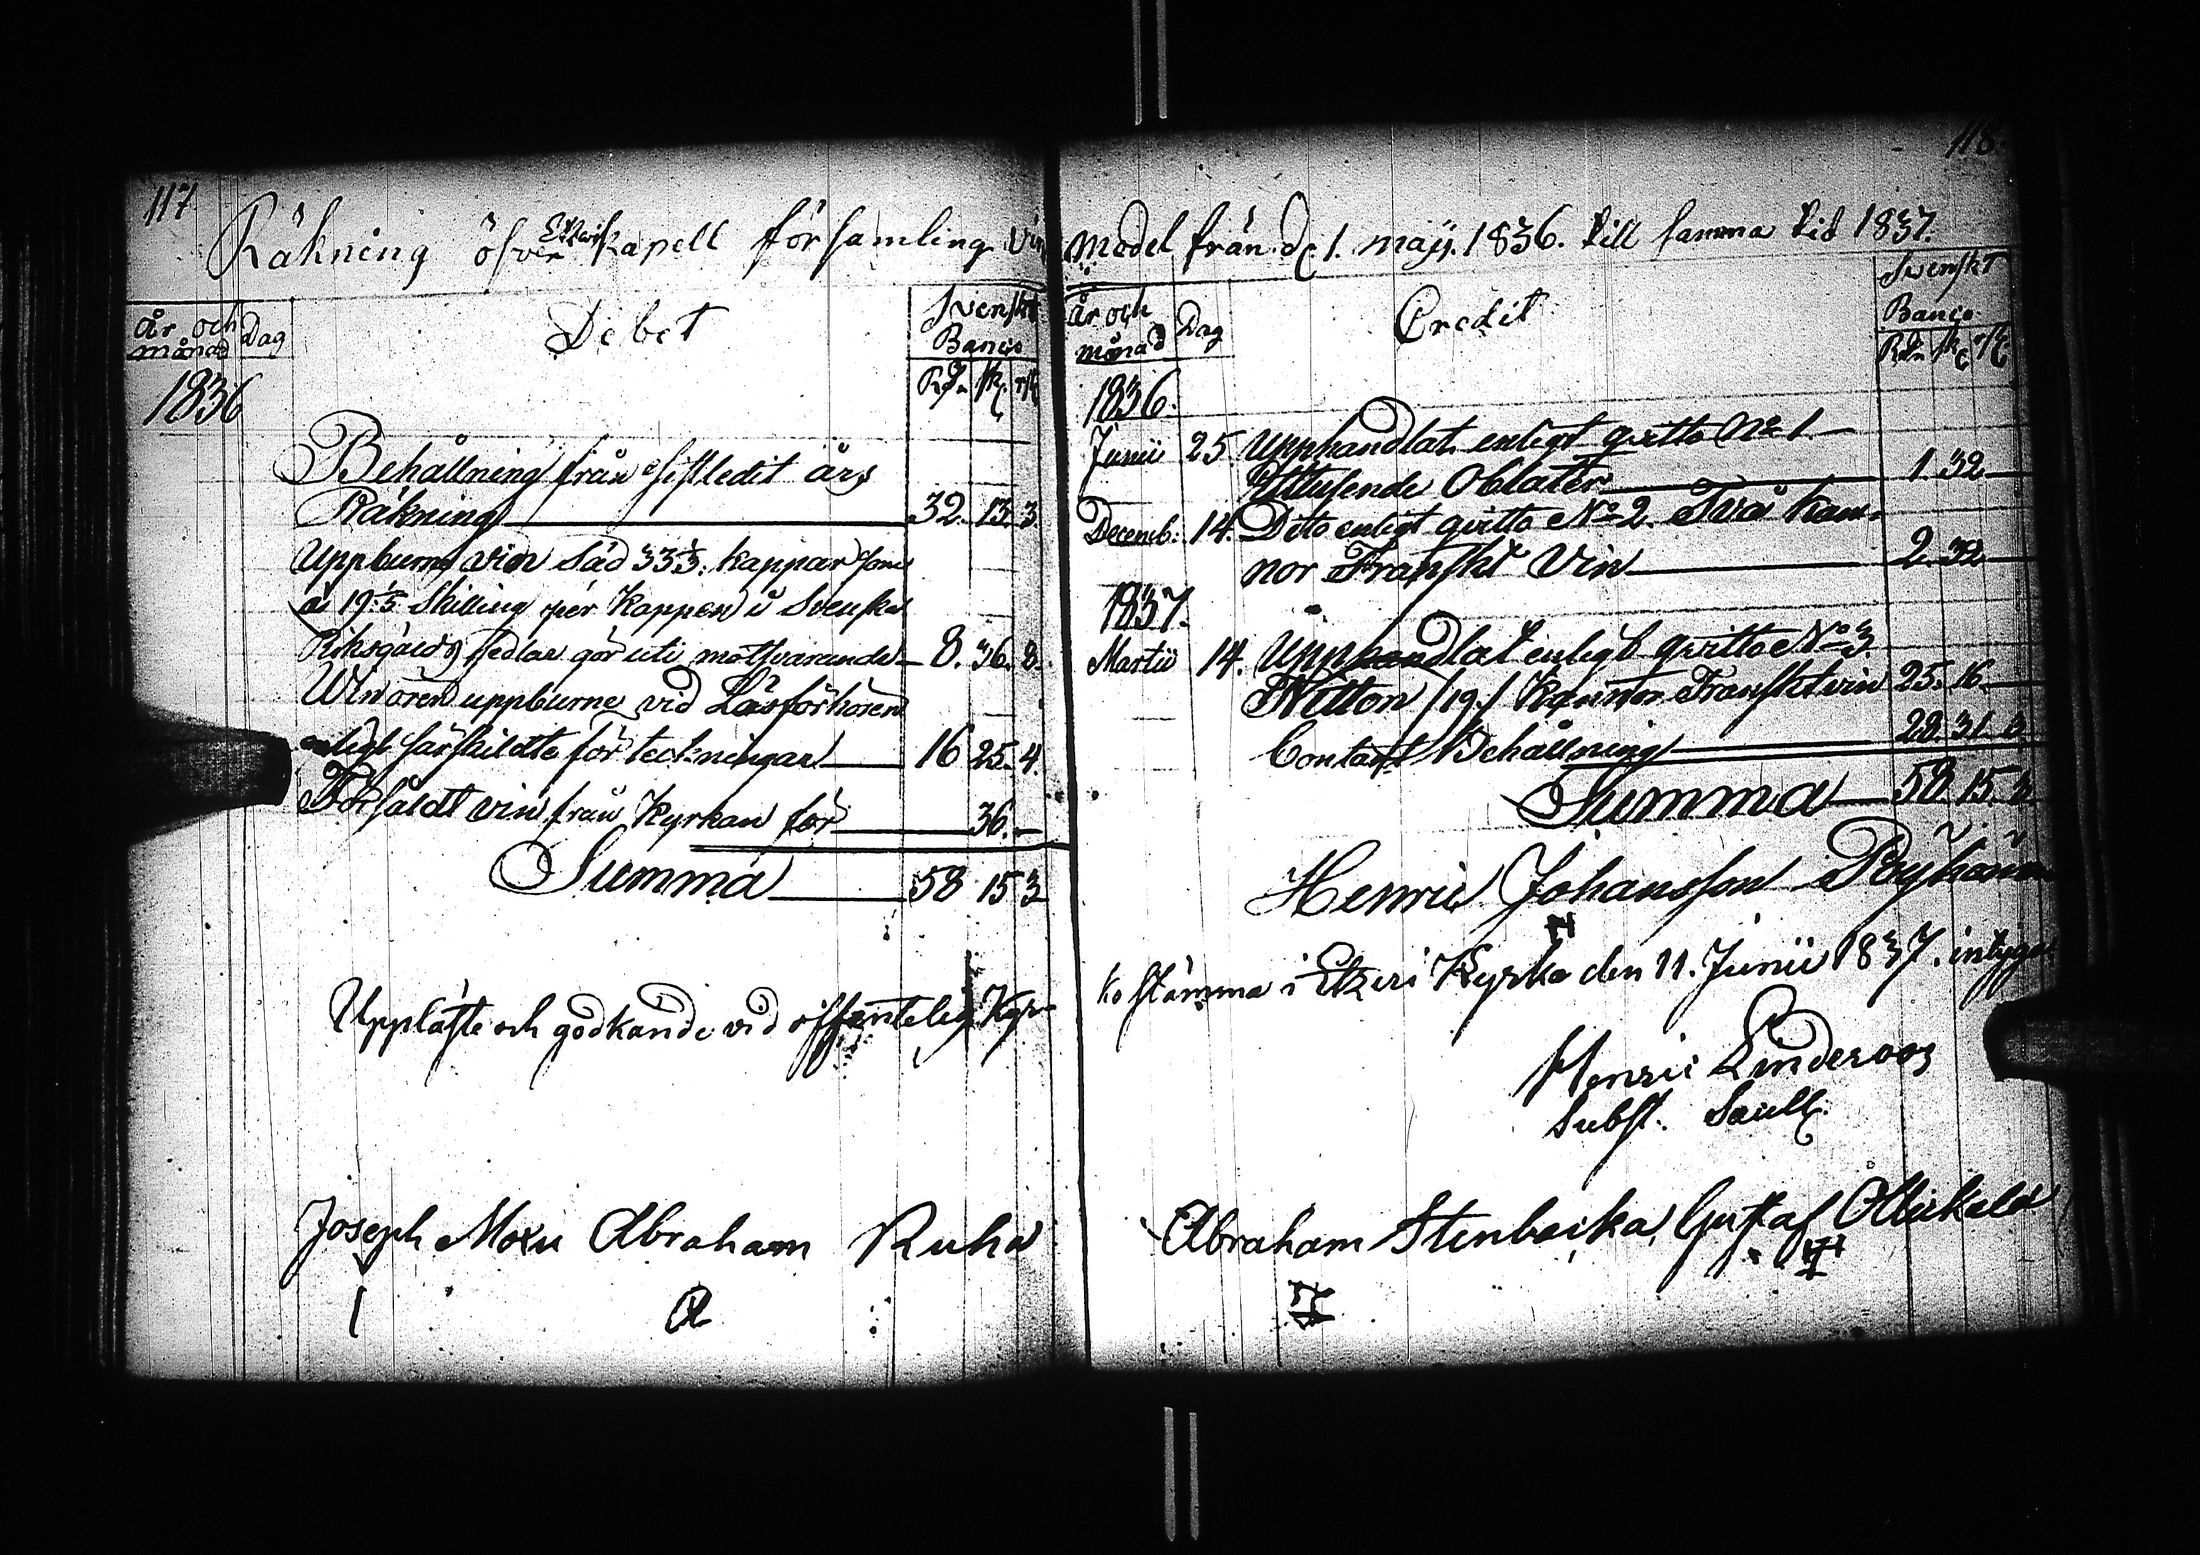 117
Räkning öfver Etzeri Kapell församling Vin
År och månad Dag Debet Svenskt Banco
Rdr sk. r/st
1836
Behållning från sistledit års
Räkning 32. 13. 3.
Uppburne vin Säd 33⅓. kappar som
á 19⅕ Skilling per Kappen i Svenska
Riksgälds sedlar gör uti motsvarande 8. 36. 8.
Winören uppburne vid Läsförhören
enligt särskildte för teckningar 16 25. 4.
Försåldt vin från Kyrkan för 36. –
Summa 58 15 3
Uppläste och godkände vid offentelig Kyr-
Joseph Moxu Abraham Ruha
A
118
medel från d. 1. maji. 1836. till samma tid 1837.
År och månad Dag Credit Svenskt Banco.
Rdr sk r/st
1836.
Junii 25 Upphandlat enligt qvitto No 1
Ettusende Oblater 1. 32
Decemb: 14. Dito enligt qvitto No 2. Två Kan-
nor Franskt Vin 2. 32
1837.
Martii 14. Upphandlat enligt qvitto No 3.
Nitton /19./ Kannor Franskt vin 25. 16.
Contant Behållning 28. 31. 3
Summa 58. 15. 3
Henric Johansson
ko stämma i Etzeri Kyrka den 11. Junii 1837. intygar
Henric Linderoos
Subst. Sacell.
Abraham Stenbacka Gustaf Ollikala